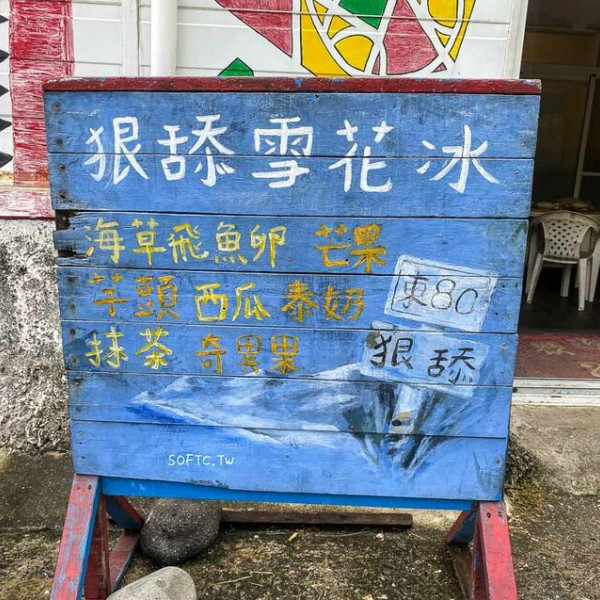 狠舔雪花冰
海草飛魚卵 芒果
芋頭 西瓜 泰奶
東80
抹茶 奇異果
狠舔
SOFTC.TW